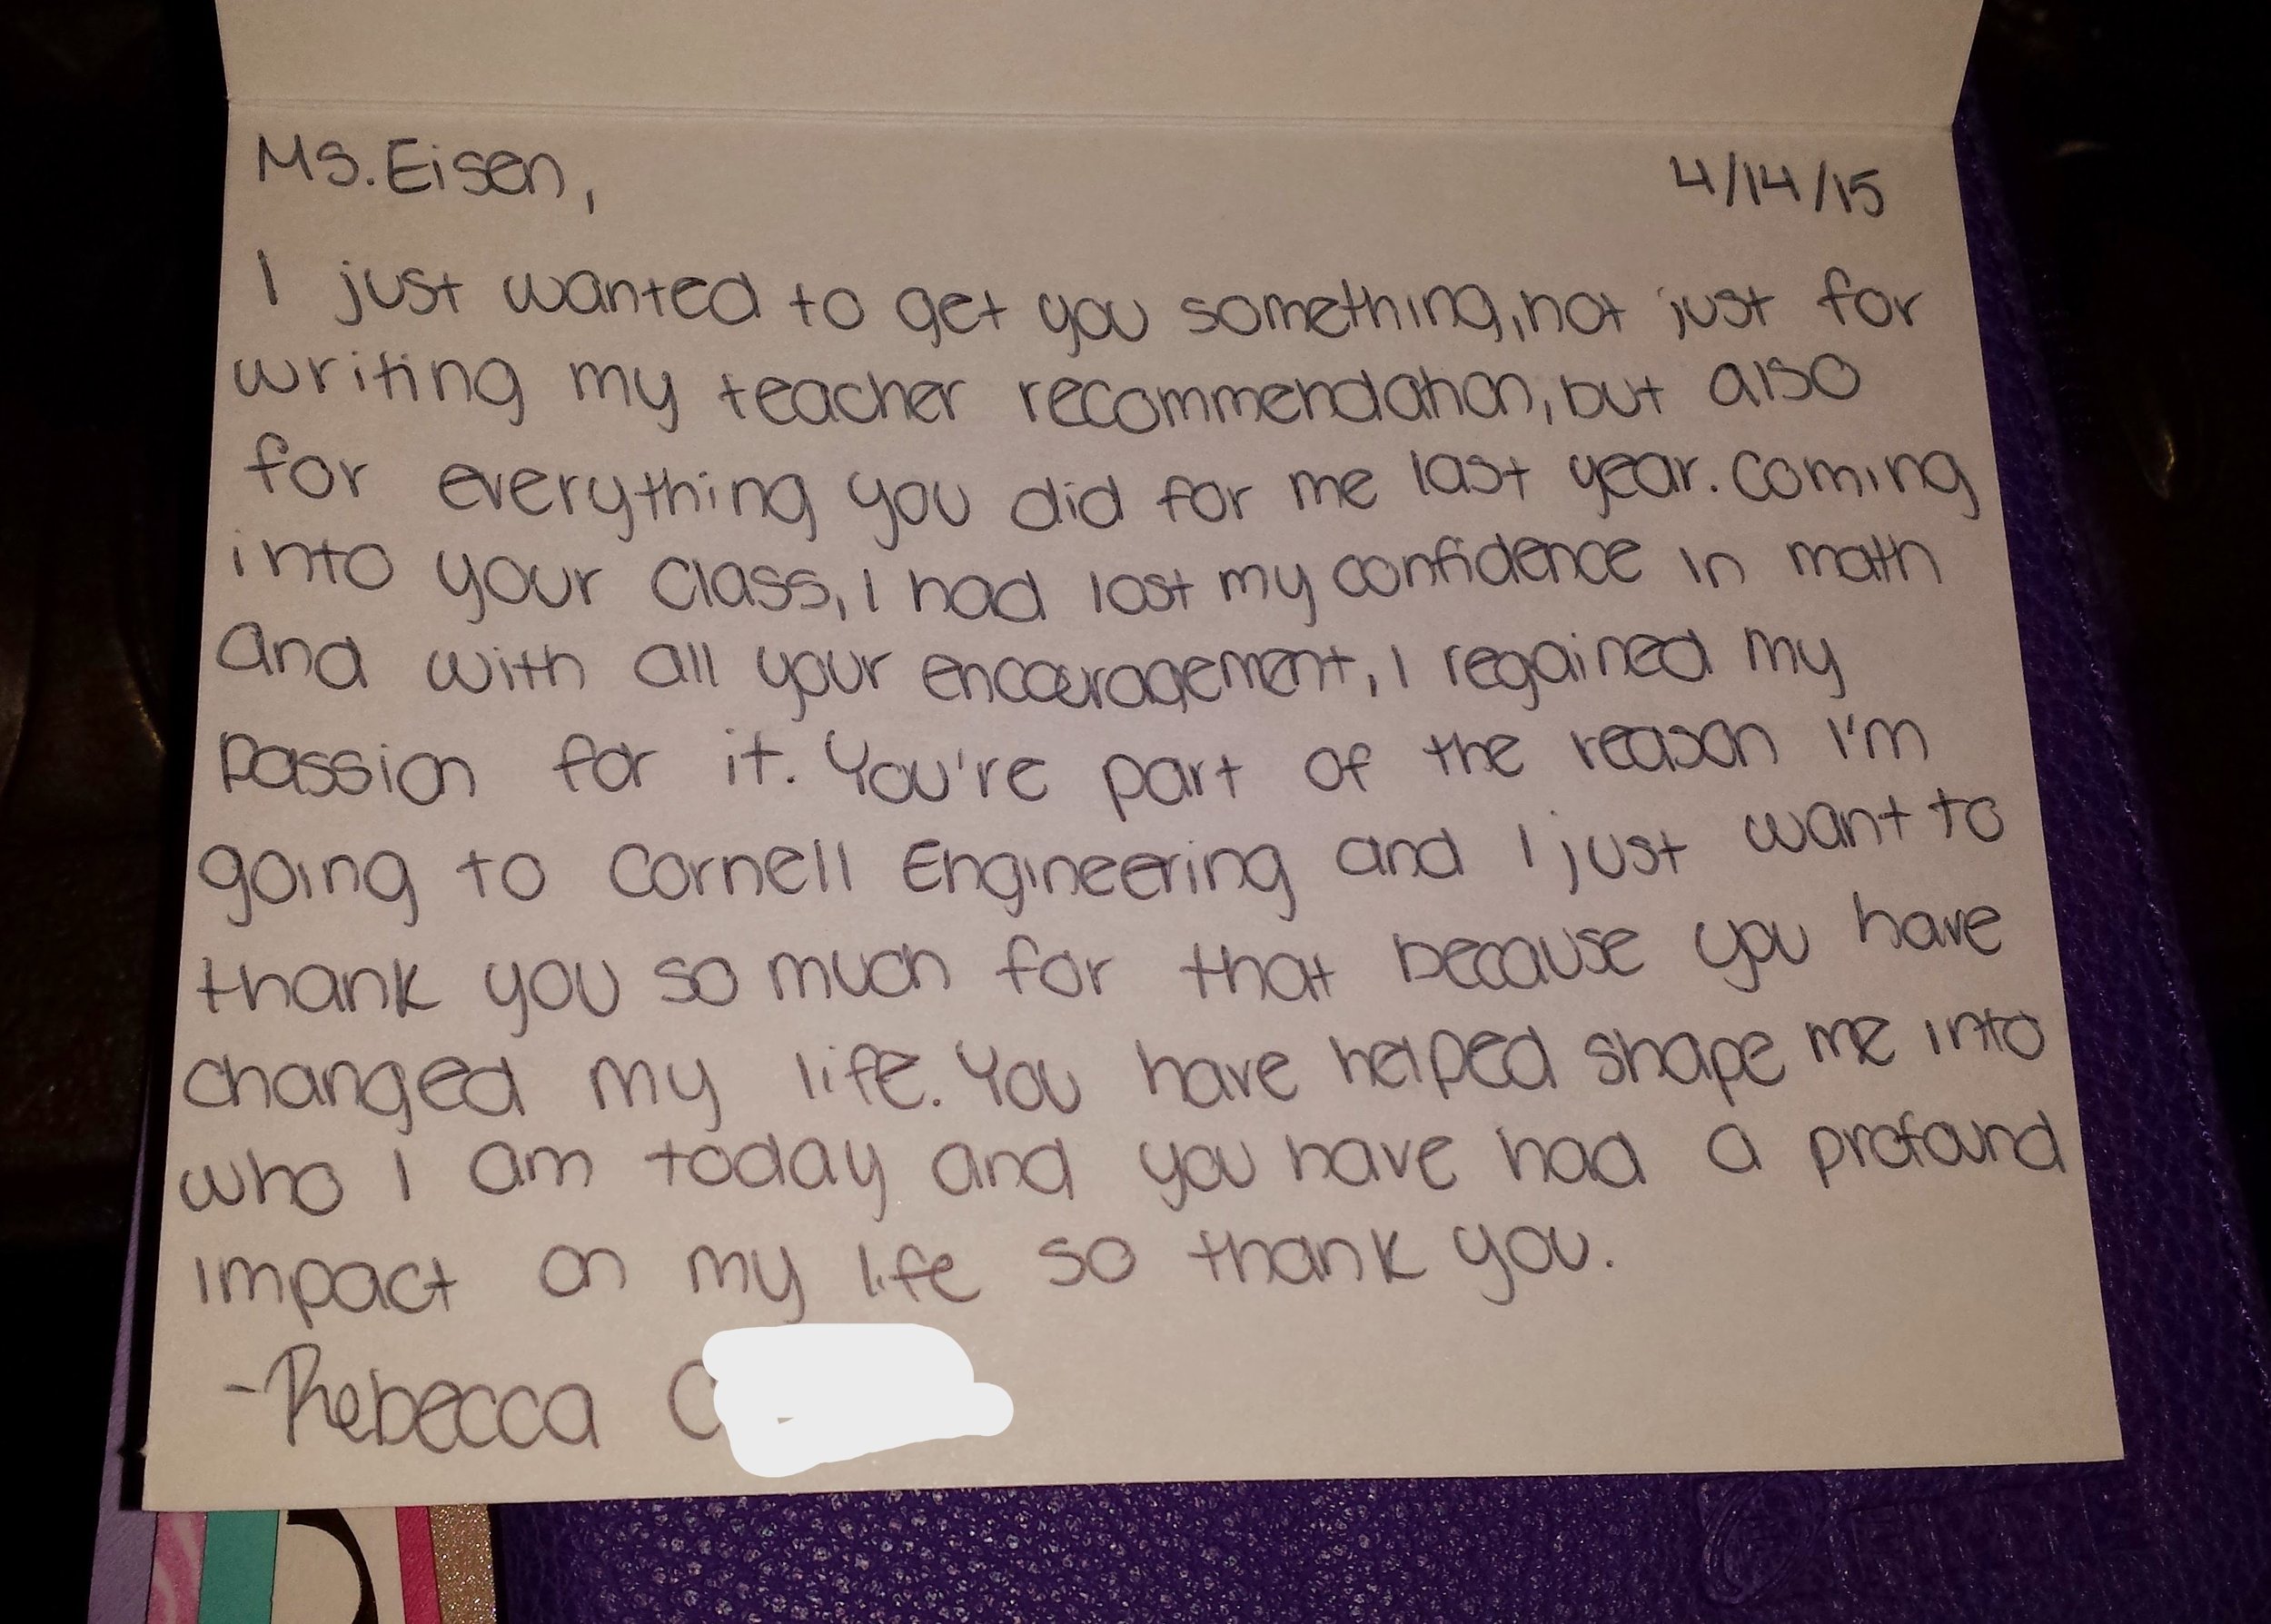 Ms. Eisen,
4/14/15
I just wanted to get you something, not just for
writing my teacher recommendation, but also
for everything you did for me last year. Coming
into your class, I had lost my confidence in math
and with all your encouragement, I regained my
passion for it. You're part of the reason I'm
going to Cornell Engineering and I just want to
thank you so much for that because you have
changed my life. You have helped shape me into
who I am today and you have had a profound
impact on my life so thank you.
-Rebecca C